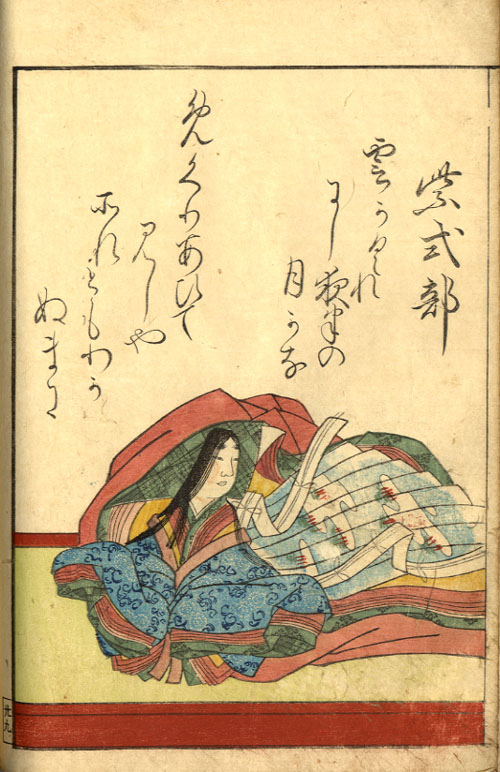 紫式部
雲かくれ
にし
夜半の
月かな
めくりあひて
見しや
それともわか
ぬまに
廿九